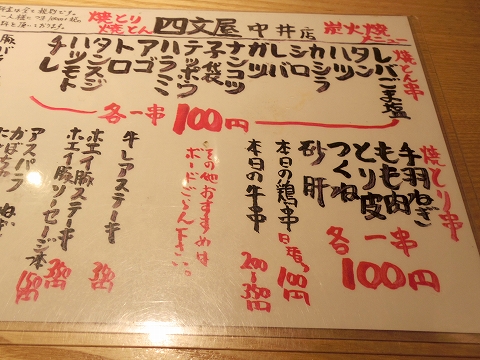 焼とり
焼とん
四文屋 中井店
炭火焼
メニュー
焼とん串
レバごま塩
タン
ハツ
カシラ
シロ
ガツ
ナンコツ
子袋
テッポウ
ハラミ
アゴ
トロ
タンスジ
ハツモト
チレ
各一串 100円
焼とり串
手羽ねぎ
もも肉
とり皮
つくね
各一串
100円
砂肝
本日の鶏串
100円
本日の牛串
200〜350円
その他おすすめは
ボードごらん下さい。
牛レアステーキ
ホエイ豚ステーキ
ホエイ豚ソーセージ一本
アスパラ
かぼちゃ